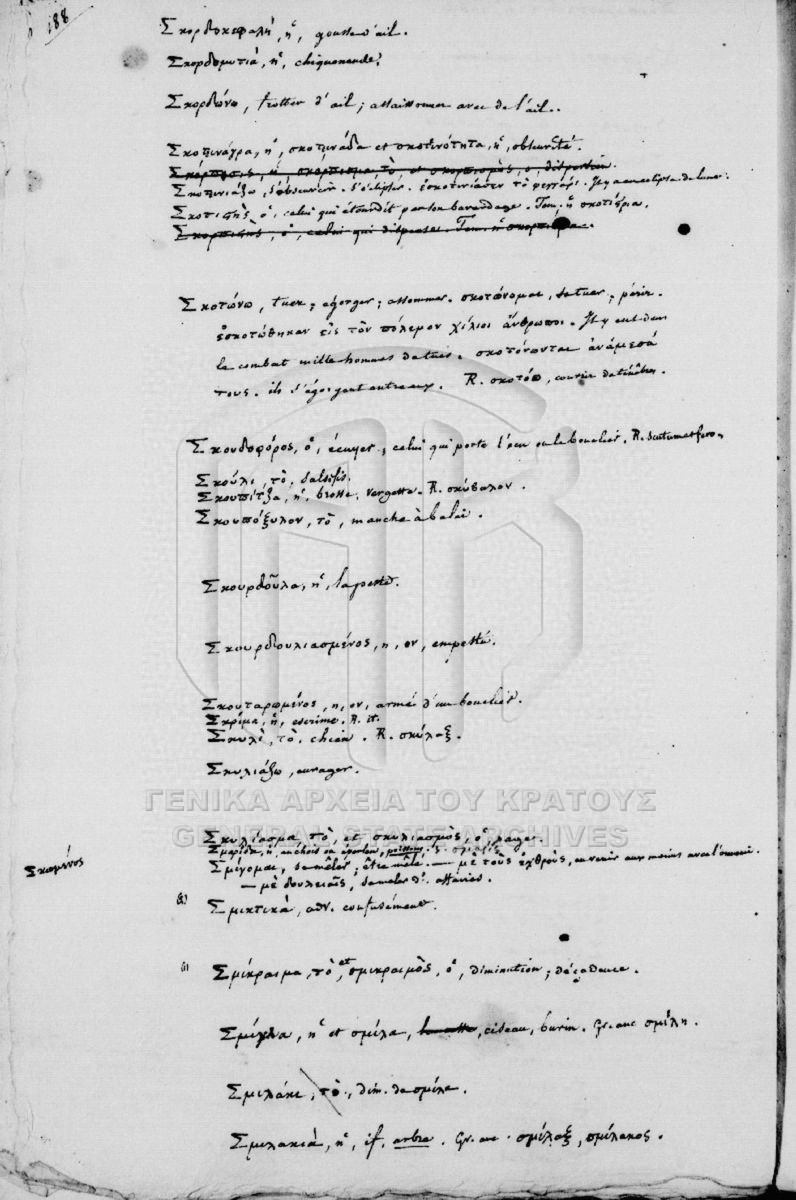 188
Σκορδοκεφαλή, ἡ, gousse d'ail.
Σκορδομυτιά, ἡ, chiquenaude.
Σκορδώνω, frotter d'ail; assaisonner avec de l'ail.
Σκοτινάγρα, ἡ, σκοτινάδα et σκοτινότητα, ἡ, obscurité.
Σκόρπισις, ἡ, σκόρπισμα, τὸ, et σκορπισμὸς, ὁ,
Σκοτινιάζω, s'obscurcir. s'éclipser. ἐσκοτινίασεν τὸ φεγγάρι. Il y a eu eclipse de lune.
Σκοτιστὴς, ὁ, celui qui étourdit par son bavardage. Fem. ἡ σκοτίστρια.
Σκορπιστὴς, ὁ, celui qui disperse. Fem. ἡ σκορπίστρα.
Σκοτώνω, tuer; égorger; assommer. σκοτώνομαι, se tuer; périr.
ἐσκοτώθηκαν εἰς τὸν πόλεμον χίλιοι ἄνθρωποι. Il y eut dans
le combat mille hommes de tués. σκοτόνωνται ἀνάμεσά
τους. ils s'égorgent entre eux. R. σκοτόω, couvrir de ténèbres.
Σκουδοφόρος, ὁ, écuyer; celui qui porte l'écu ou le bouclier. R. scutum et fero.
Σκούλι, τὸ, salsifis.
Σκουπίτζα, ἡ, brosse, vergette. R. σκύβαλον.
Σκουπόξυλον, τὸ, manche à balai.
Σκουρδοῦλα, ἡ, la peste.
Σκουρδουλιασμένος, η, ον, empesté.
Σκουταρωμένος, η, ον, armé d'un bouclier.
Σκρίμα, ἡ, escrime. R. it.
Σκυλὶ, τὸ, chien. R. σκύλαξ.
Σκυλιάζω, enrager.
ΓΕΝΙΚΑ ΑΡΧΕΙΑ ΤΟΥ ΚΡΑΤΟΥΣ
GENERAL STATE ARCHIVES
Σκυλίασμα, τὸ, et σκυλιασμὸς, ὁ, rage.
Σμαρίδα, ἡ, anchois ou éperlan, poisson.
Σκωμένος
Σμίγομαι, se mêler; être mêlé. — μὲ τοὺς ἐχθροὺς, en venir aux mains avec l'ennemi.
— μὲ δουλειαῖς, se mêler d'affaires.
Σμικτικά, adv. confusément.
Σμίκραιμα, τὸ, et σμικραιμὸς, ὁ, diminution; décadence.
Σμίγλα, ἡ et σμίλα, ciseau, burin. Gr. anc σμίλη.
Σμιλάκι, τὸ, dim. de σμίλα.
Σμιλακιά, ἡ, if, arbre. Gr. anc. σμίλαξ, σμίλακος.